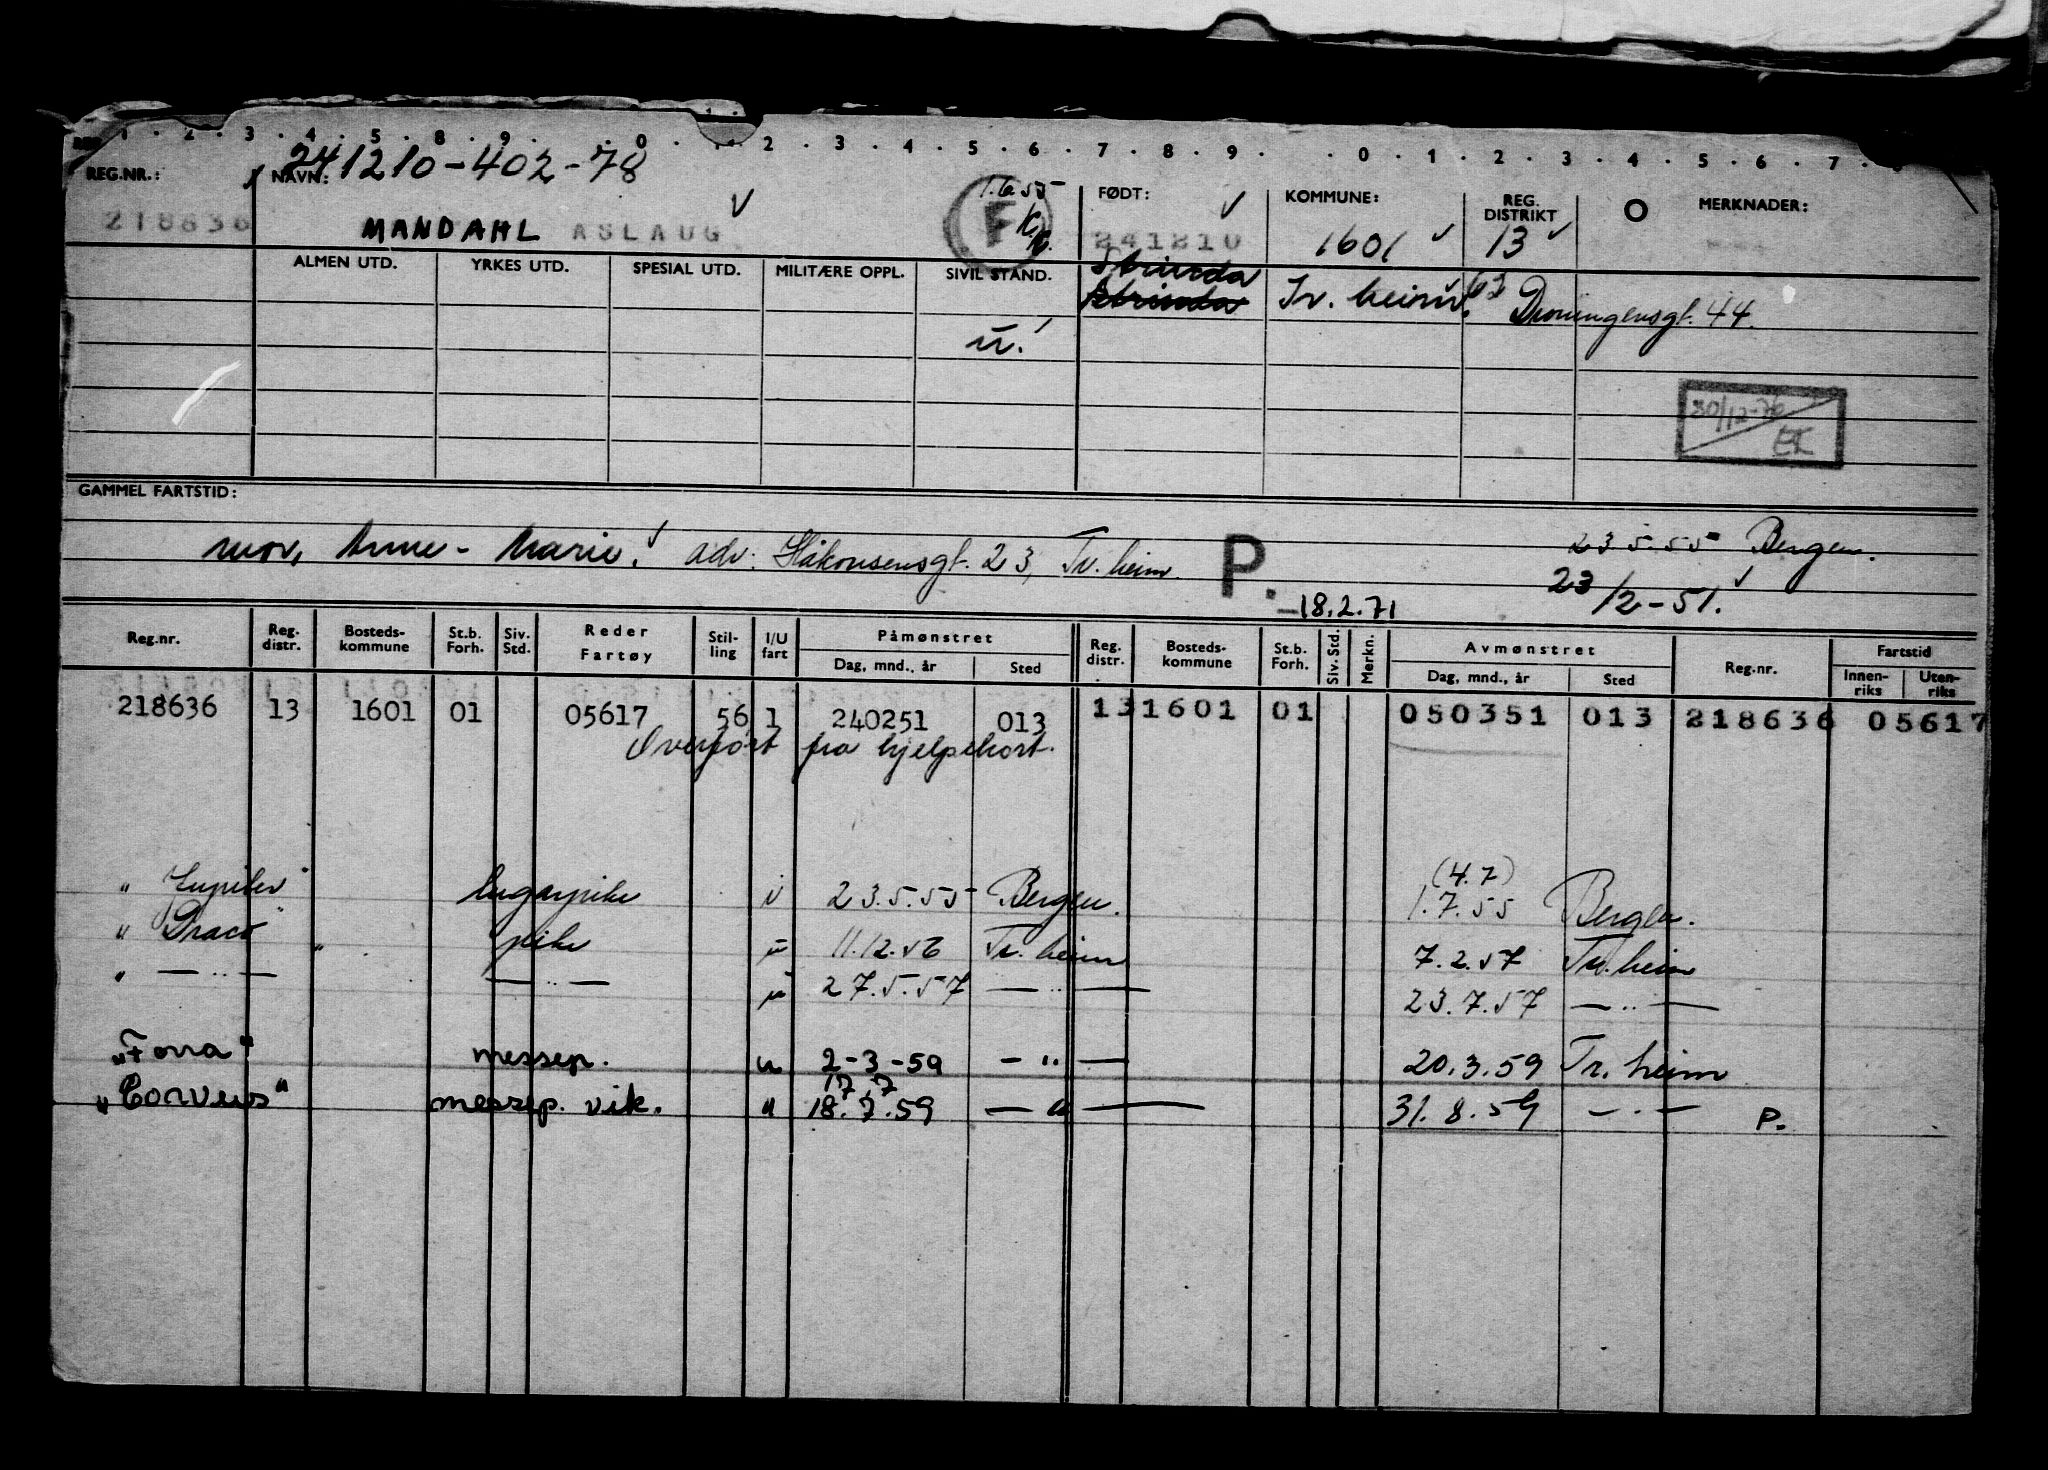 1 . 2 . 3 . 4 . 5 . 8 . 9 . . 0 . 1 . 2 . 3 . 4 . 5 . 6 . 7 . 8 . 9 . . 0 . 1 . 2 . 3 . 4 . 5 . 6 . 7 .
REG.NR.: NAVN: 241210-402-78 1.6.55 FØDT: KOMMUNE: REG. DISTRIKT O MERKNADER:
218636 MANDAHL ASLAUG F 241210 1601 13
ALMEN UTD. YRKES UTD. SPESIAL UTD. MILITÆRE OPPL. SIVIL STAND. Strinda
Strinda Tr. heim. Dronningensgt. 44.
u.
30/12-76
EK
GAMMEL FARTSTID:
mor, Anne-Marie. adr: Håkonsensgt. 23, Tr. heim. P. 23.5.55 Bergen.
18.2.71 23/2-51.
Reg.nr. Reg. distr. Bosteds-kommune St.b. Forh. Siv. Std. Reder Fartøy Stil-ling I/U fart Påmønstret Reg. distr. Bosteds-kommune St.b. Forh. Siv. Std. Merkn. Avmønstret Reg.nr. Fartstid
Dag, mnd., år Sted Dag, mnd., år Sted Innen-riks Uten-riks
218636 13 1601 01 05617 56 1 240251 013 13 1601 01 050351 013 218636 05617
Overført fra hjelpekort.
(4.7)
" Jupiter" lugarpike i 23.5.55 Bergen. 1.7.55 Bergen.
" Draco " pike u 11.12.56 Tr. heim 7.2.57 Tr. heim
" — .. — — .. — u 27.5.57 — .. — 23.7.57 — .. —
"Forra" messep. u 2-3-59 — " — 20.3.59 Tr. heim
17.7
"Corvus" messep. vik. " 18.7.59 — " — 31.8.59 — . — P.